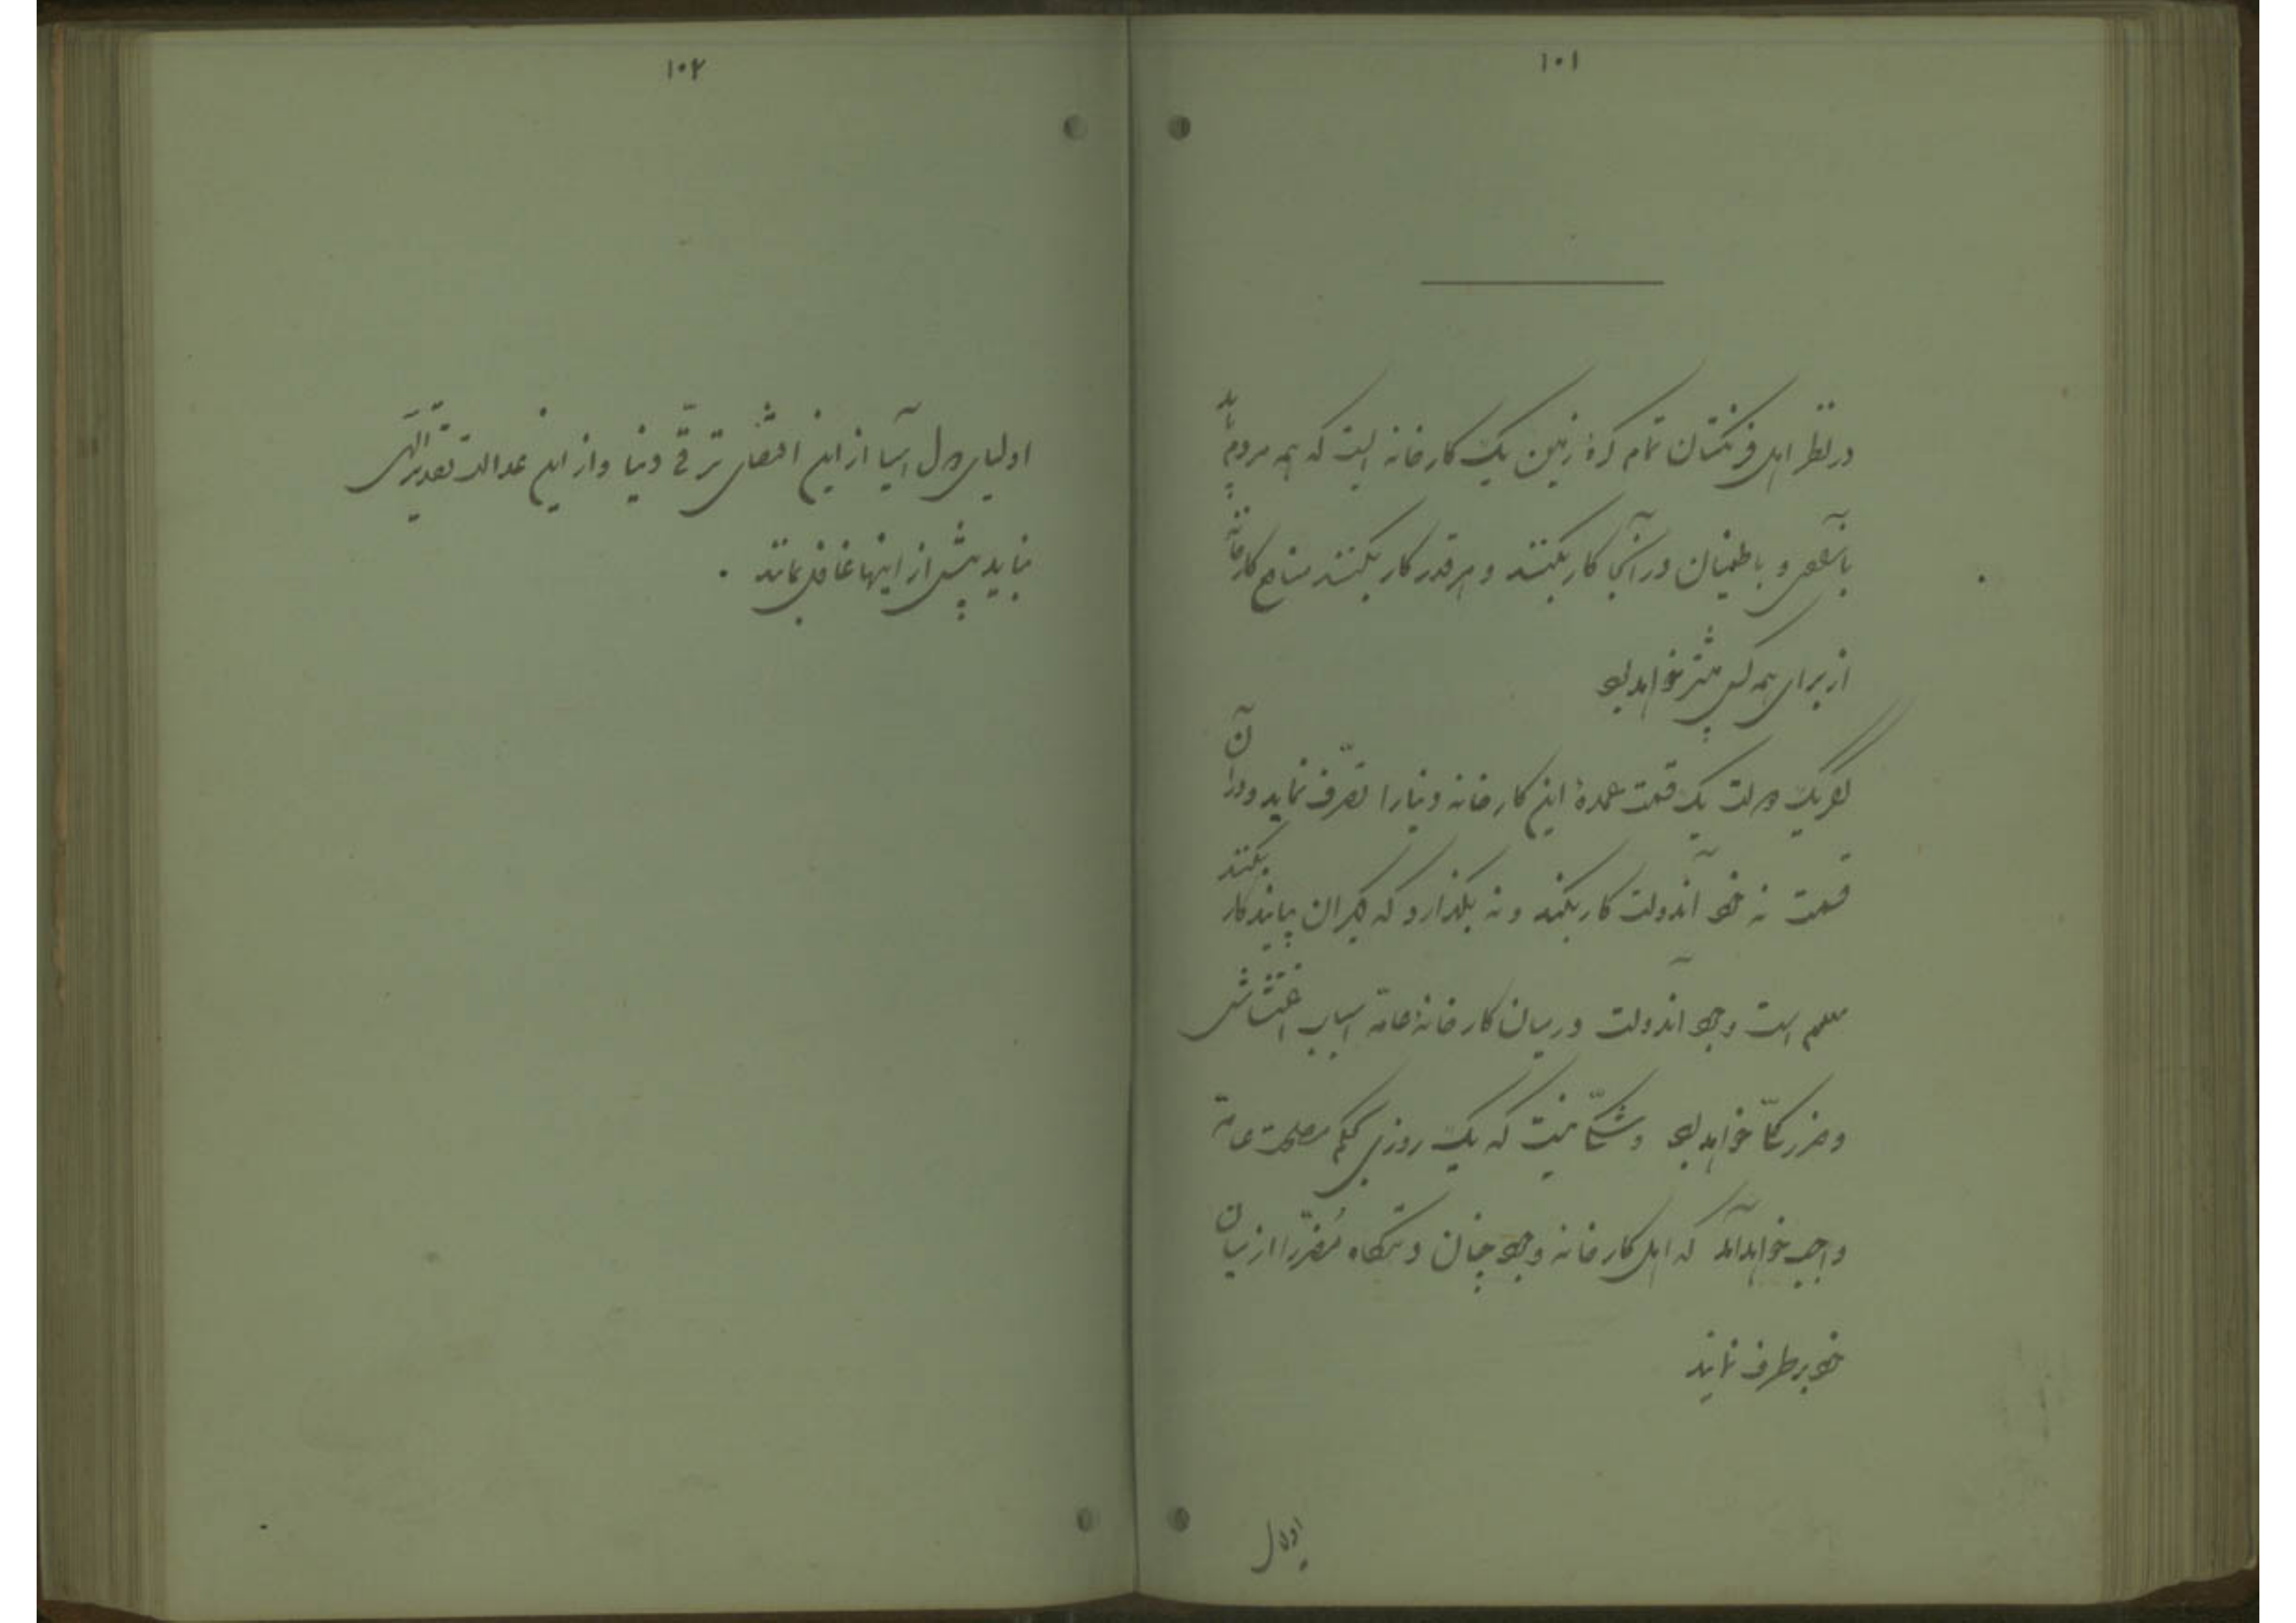 ۱۰۱
در نظر اهل فرنگستان تمام کرهٔ زمین یک کارخانه ایست که همه مردم باید
بالتساوی و باطمینان در آنجا کار بکنند و هر قدر کار بکنند منافع کارخانه
از برای همه کس بیشتر خواهد بود
اگر یک دولت یک قسمت عمدهٔ این کارخانه دنیا را تصرّف نماید و در آن
قسمت نه خود آندولت کار بکند و نه بگذارد که دیگران بیایند کار بکنند
معلوم است وجود آندولت در میان کارخانهٔ عامّه اسباب اغتشاش
و ضرر کلّی خواهد بود و شکّی نیست که یک روزی بحکم مصلحت عامه
واجب خواهد آمد که اهل کارخانه وجود چنان دستگاه مُضرّ را از میان
خود برطرف نمایند
۱۰۲
اولیای دول آسیا از این اقتضای ترقّی دنیا و از این عدالت تقدیر الٓهی
نباید بیش از اینها غافل بمانند .